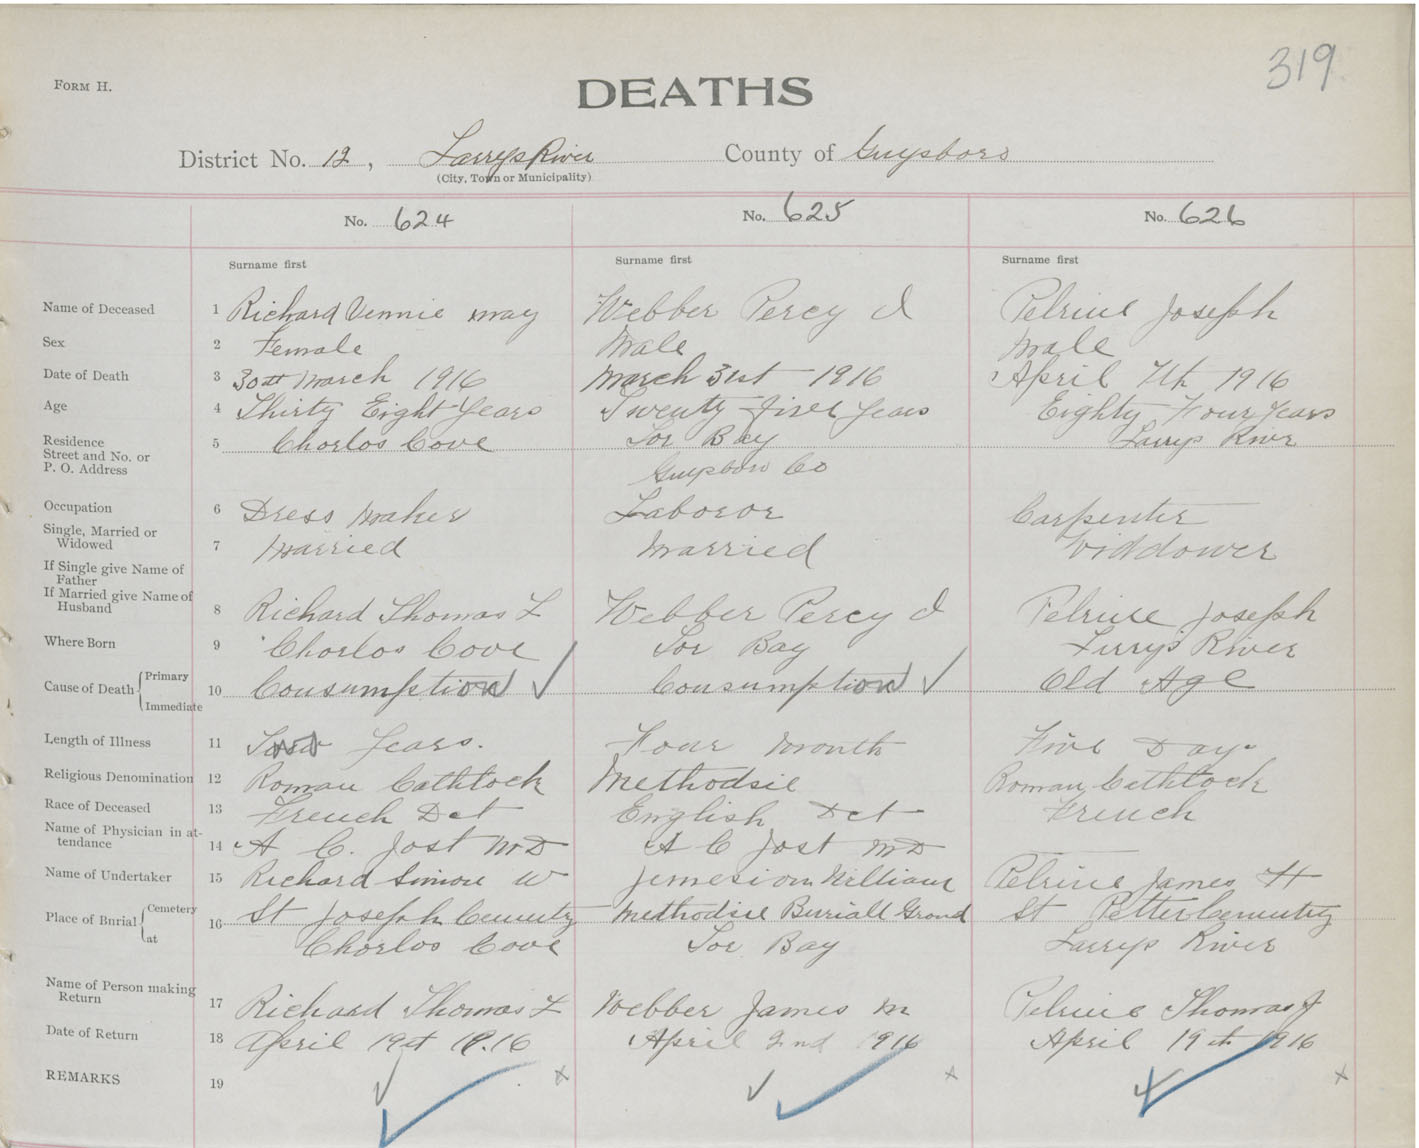 319
FORM H.
DEATHS
District No. 12, Larrys River County of Guysboro
(City, Town or Municipality)
No. 624 No. 625 No. 626
Surname first Surname first Surname first
Name of Deceased 1 Richard Vennie may Webber Percy I Pelrine Joseph
Sex 2 Female Male male
Date of Death 3 30th March 1916 March 31st 1916 April 7th 1916
Age 4 Thirty Eight Years Twenty five Years Eighty Four Years
Residence
Street and No. or
P. O. Address 5 Chorlos Cove Tor Bay Larrys River
Guysboro Co
Occupation 6 Dress Maker Laboror Carpenter
Single, Married or
Widowed 7 Married Married Widdower
If Single give Name of
Father
If Married give Name of
Husband 8 Richard Thomas L Webber Percy I Pelrine Joseph
Where Born 9 Chorlos Cove Tor Bay Larrys River
Cause of Death Primary
Immediate 10 Consumption Consumption Old Age
Length of Illness 11 Years. Four Month Five Day
Religious Denomination 12 Roman Cathlock Methodsie Roman Cathlock
Race of Deceased 13 French Dct English Dct French
Name of Physician in at-
tendance 14 A C. Jost MD A C Jost MD
Name of Undertaker 15 Richard Simon W Jemesion William Pelrine James H
Place of Burial Cemetery
at 16 St Joseph Cemuntry Methodsie Buriall Grond St Petter Cemuntry
Chorlos Cove Tor Bay Larrys River
Name of Person making
Return 17 Richard Thomas L Webber James M Pelrine Thomas J
Date of Return 18 April 19.16 April 2nd 1916 April 19th 1916
REMARKS 19